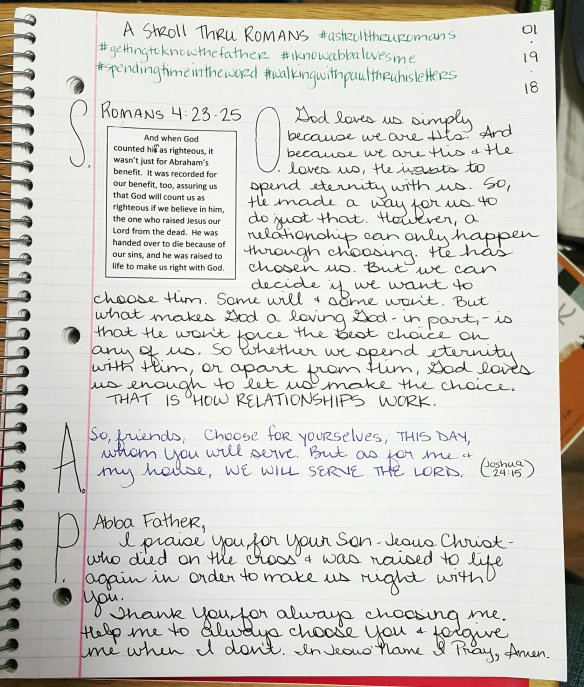 A Stroll Thru Romans #astrollthruromans
#gettingtoknowthefather #iknowabbalovesme
#spendingtimeintheword #walkingwithpaulthruhisletters
01
.
19
.
18
S.
Romans 4:23-25
And when God
counted him as righteous, it
wasn't just for Abraham's
benefit. It was recorded for
our benefit, too, assuring us
that God will count us as
righteous if we believe in him,
the one who raised Jesus our
Lord from the dead. He was
handed over to die because of
our sins, and he was raised to
life to make us right with God.
O.
God loves us simply
because we are His. And
because we are His & He
loves us, He wants to
spend eternity with us. So,
He made a way for us to
do just that. However, a
relationship can only happen
through choosing. He has
chosen us. But we can
decide if we want to
choose Him. Some will & some won't. But
what makes God a loving God - in part, - is
that He won't force the best choice on
any of us. So whether we spend eternity
with Him, or apart from Him, God loves
us enough to let us make the choice.
THAT IS HOW RELATIONSHIPS WORK.
A.
So, friends, Choose for yourselves, THIS DAY,
whom you will serve. But as for me &
my house, WE WILL SERVE THE LORD. (Joshua
24:15)
P.
Abba Father,
I praise You, for Your Son - Jesus Christ -
who died on the cross & was raised to life
again in order to make us right with
You.
Thank You, for always choosing me.
Help me to always choose You & forgive
me when I don't. In Jesus' Name I Pray, Amen.